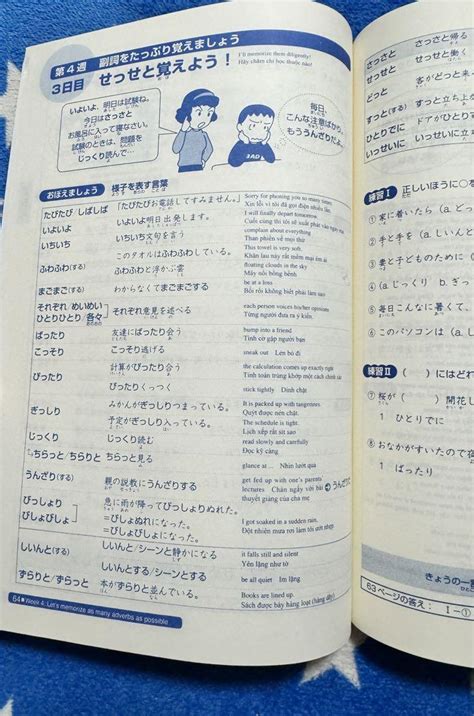 第4週 副詞をたっぷり覚えましょう
3日目 せっせと覚えよう！
I'll memorize them diligently!
Hãy chăm chỉ học thuộc nào!
いよいよ、明日は試験ね。
今日はさっさと
お風呂に入って寝なさい。
試験のときは、問題を
じっくり読んで…
毎日、
こんな注意ばかり。
もううんざりだよ…
おぼえましょう 様子を表す言葉
たびたび／しばしば 「たびたびお電話してすみません。」 Sorry for phoning you so many times.
Xin lỗi vì tôi đã gọi điện nhiều lần
いよいよ いよいよ明日出発します。 I will finally depart tomorrow.
いちいち いちいち文句を言う complain about everything
Than phiền về mọi thứ
ふわふわ(する) このタオルはふわふわしている。 This towel is very soft.
Khăn lau này rất mềm mại
ふわふわと浮かぶ雲 floating clouds in the sky
Mây nổi bồng bềnh
まごまご(する) わからなくてまごまごする be at a loss
Bối rối không biết phải làm sao
それぞれ／めいめい
ひとりひとり／各々
それぞれ意見を述べる each person voices his/her opinions
Từng người đưa ra ý kiến
ばったり 友達にばったり会う bump into a friend
Tình cờ gặp người bạn
こっそり こっそり逃げる sneak out Lén bỏ đi
ぴったり 計算がぴったり合う the calculation comes up exactly right
Tính toán trùng khớp một cách chính xác
ぴったりくっつく stick tightly Dính chặt
ぎっしり みかんがぎっしりつまっている。 It is packed up with tangerines.
Quýt được nén chặt.
予定がぎっしり入っている。 The schedule is tight.
Lịch xếp rất sít sao
じっくり じっくり読む read slowly and carefully
Đọc kỹ càng
ちらっと／ちらりと ちらっと見る glance at… Nhìn lướt qua
うんざり(する) 親の説教にうんざりする get fed up with one's parents' lectures Chán ngấy với bài
thuyết giảng của cha mẹ
びっしょり
びしょびしょ
急に雨が降ってびっしょりぬれた。 I got soaked in a sudden rain.
＝びしょぬれになった。 Đột nhiên mưa rơi làm tôi ướt nhẹp.
＝びしょびしょになった。
しいんと(する) しいんと／シーンと静かになる it falls still and silent
Yên lặng như tờ
しいんとする／シーンとする be all quiet Im lặng
ずらりと／ずらっと 本がずらりと並んでいる。 Books are lined up.
Sách được bày hàng loạt (hàng dãy)
64 Week 4: Let's memorize as many adverbs as possible
さっさと さっさと帰る
せっせと せっせと働く
どっと 客がどっと
すっと(する) すっと立ち上
ひとりでに ドアがひとりで
いっせいに いっせいに
練習Ⅰ 正しいほうに○
① 家に着いたら（a.
② 手と手を（a. しいんと
③ 妻と子どものために（a.
④ （a. じっくり b. ぎっ
⑤ 毎日こんなに暑くて、
⑥ このパソコンは（a.
練習Ⅱ （ ）にはどれ
⑦ 桜が（ ）開花し
1 ひとりでに
⑧ おなかがすいたので
1 ばったり
きょうの一
63ページの答え： Ⅰ－①